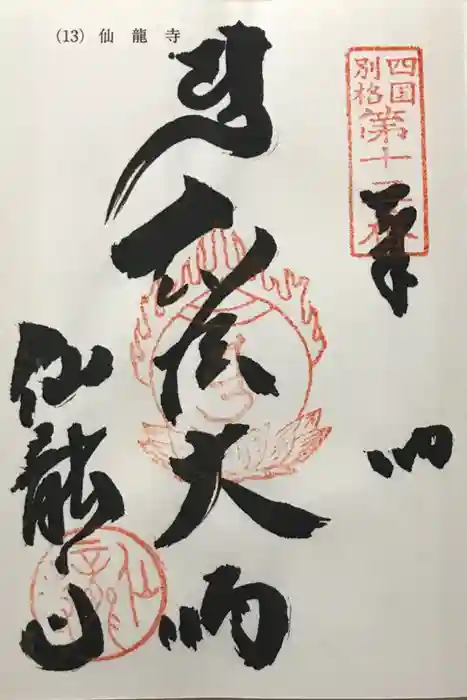 (13) 仙龍寺
四国
別格
第十三番
奉納
弘法大師
仙龍寺